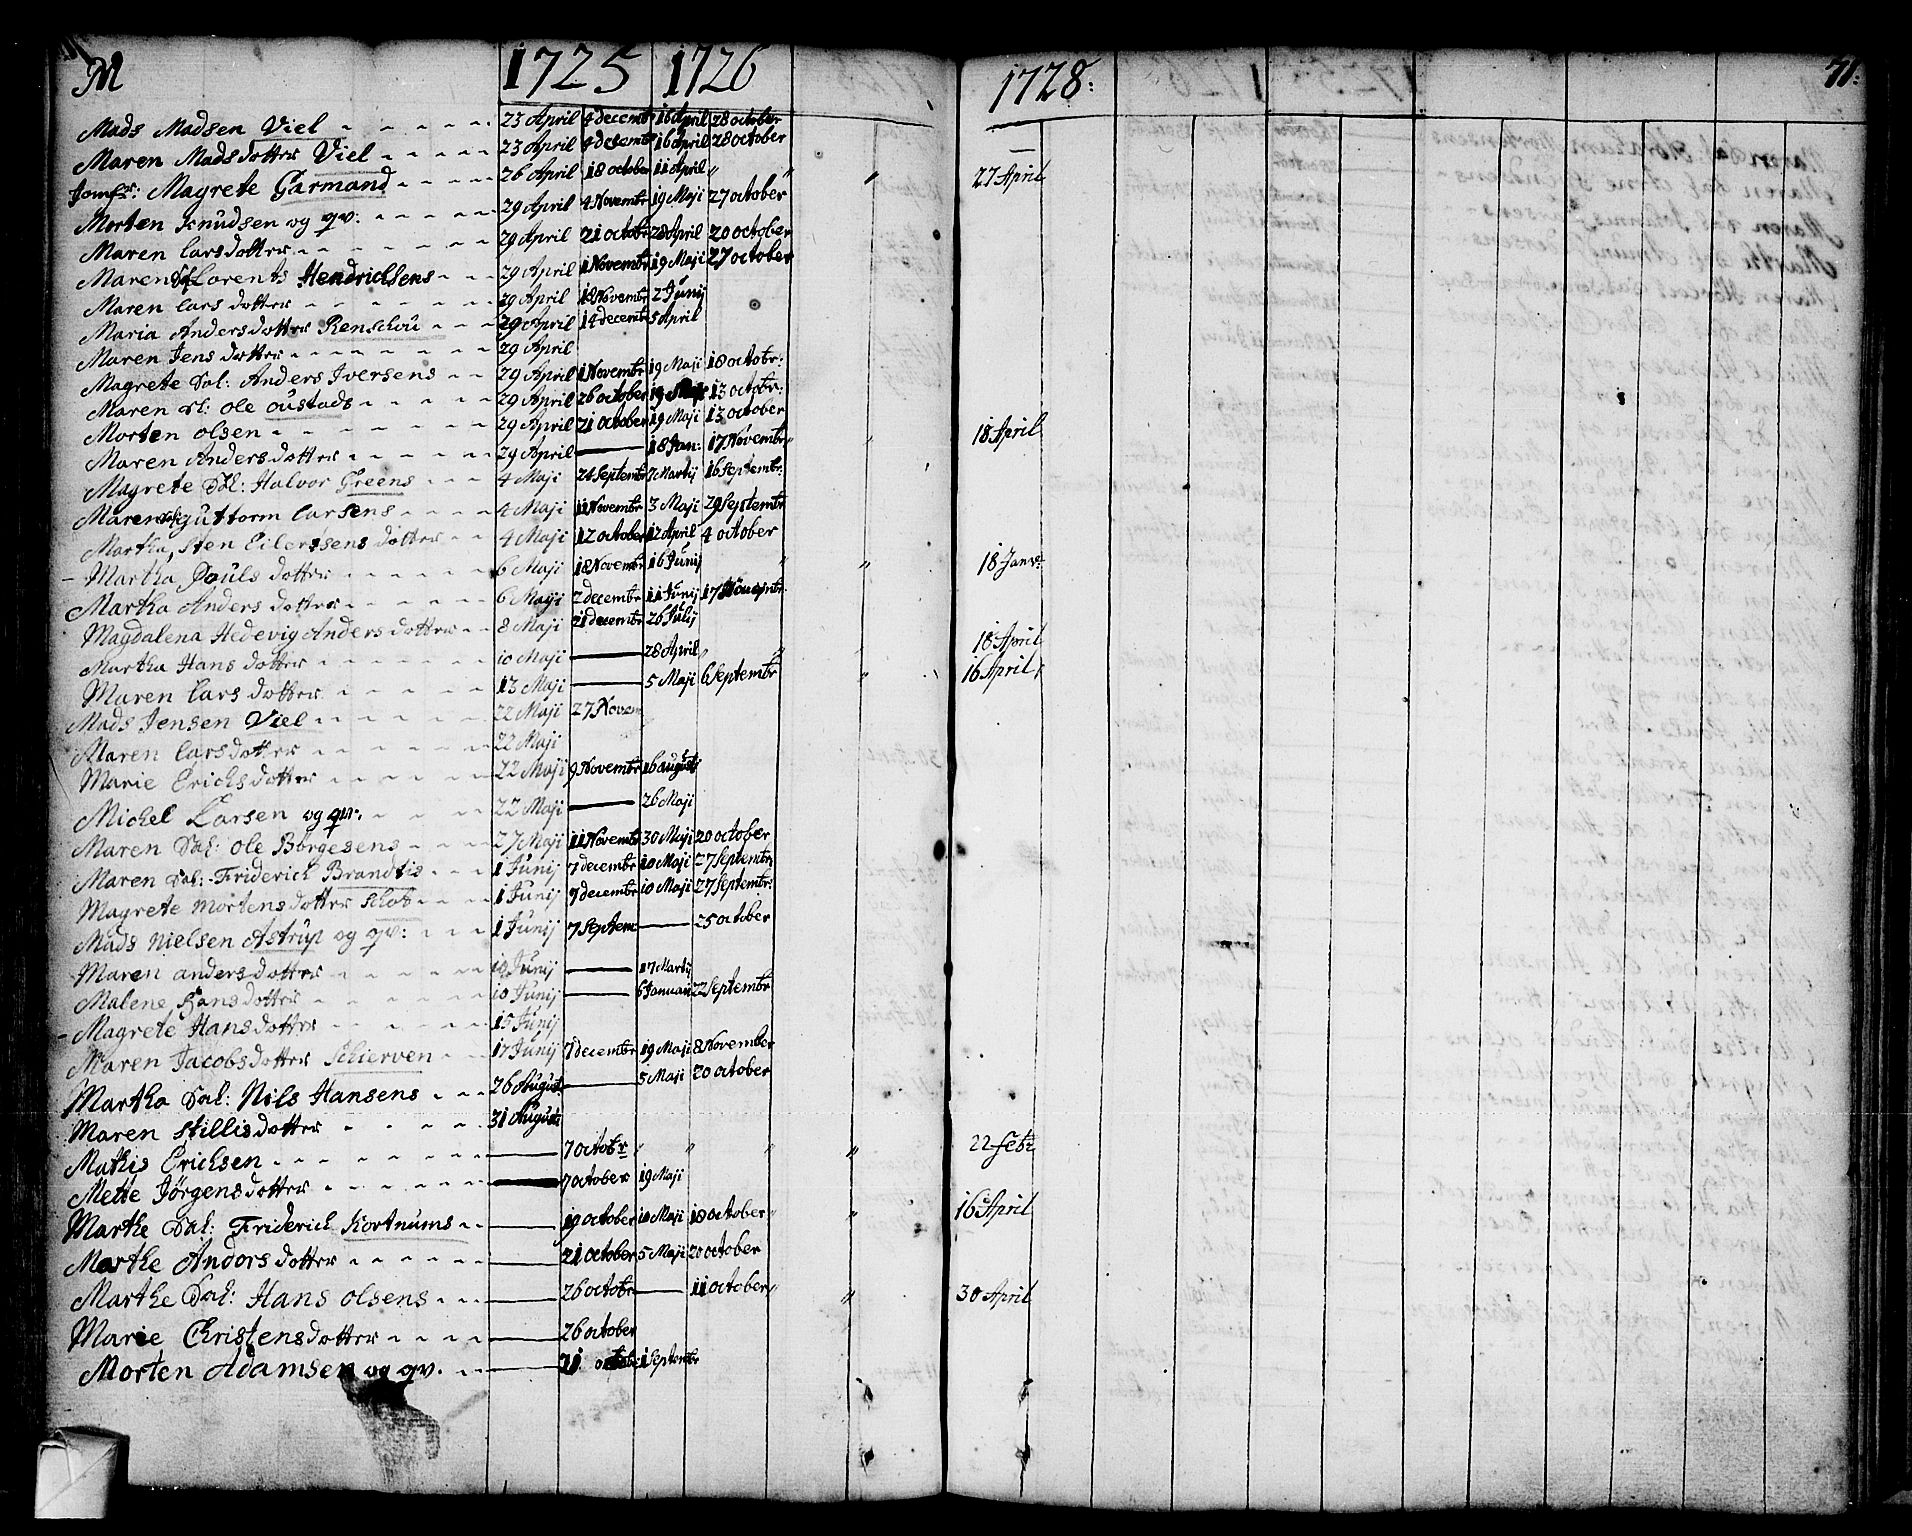 M 1725 1726 1728: 71:
Mads Madsen Viel 23 April 4 decembr 16 April 28 october
Maren Mads dotter Viel 23 April 4 desembr 16 April 28 october
Jomfr: Magrete Garmand 26 April 18 october 11 April " " " 27 April
Morten Knudsen og qv: 29 April 4 Novembr 19 Maji 27 october
Maren Lars dotter 29 April 21 octobr 28 April 20 october
Maren Lorents Hendrichsens 29 April 1 Novembr 19 Maji 27 october
Maren Lars dotter 29 April 18 Novembr 2 Junij
Maria Anders dotter Renschou 29 April 14 decembr 5 April
Maren Jens dotter 29 April
Magrete Sal: Anders Iversens 29 April 1 Novembr 19 Maji 18 octobr:
Maren Sl: Ole Oustads 29 April 26 october 19 Maji 13 octobr:
Morten Olsen 29 April 21 october 19 Maji 13 october
Maren Anders dotter 29 April — 18 Jan: 17 Novembr " " 18 April
Magrete Sal: Halvor Greens 4 Maji 24 Septembr 7 Martij 16 Septembr:
Maren Sal: Guttorm Larsens 4 Maji 11 Novembr 3 Maji 29 Septembr
Martha, Sten Eilerssens dotter 4 Maji 12 october 12 April 4 october
- Martha Pouls dotter 6 Maji 18 Novembr 16 Junij " " 18 Janv:
Martha Anders dotter 6 Maji 2 decembr 11 Junij 17 Novembr
Magdalena Hedevig Anders dotter 8 Maji 21 decembr 26 Julij
Martha Hans dotter 10 Maji — 28 April " " " 18 April
Maren Lars dotter 13 Maji — 5 Maji 6 Septembr " 16 April
Mads Jensen Viel 22 Maji 27 Novem
Maren Lars dotter 22 Maji
Marie Erichs dotter 22 Maji 9 Novembr 16 augusti
Michel Larsen og qv: 22 Maji — 26 Maji
Maren Sal: Ole Börgesens 27 Maji 11 Novembr 30 Maji 20 october
Maren Sal: Friderich Brandtis 1 Junij 7 decembr 10 Maji 27 Septembr
Magrete Mortens dotter Schot 1 Junij 7 decembr 10 Maji 27 Septembr:
Mads Nielsen Astrup og qv: 1 Junij 7 Septem — 25 october
Maren anders dotter 10 Junij — 17 Martij
Malene Hans dotter 10 Junij — 6 Januari 22 Septembr
- Magrete Hans dotter 15 Junij
Maren Jacobs dotter Schierven 17 Junij 7 decembr 19 Maji 8 November
Martha Sal: Nils Hansens 26 August — 5 Maji 20 october
Maren Stillis dotter 31 August
Mathis Erichsen — 7 octobr " " " " 22 Febr
Mette Jörgens dotter — 7 october 19 Maji
Marthe Sal: Friderich Kortnums — 19 october 10 Maji 18 october " " 16 April
Marthe Anders dotter — 21 october 5 Maji 20 october
Marthe Sal: Hans Olsens — 26 octobr — 11 october " " 30 April
Marie Christens dotter — 26 october
Morten Adamsen og qv. — 31 october 1 Septembr